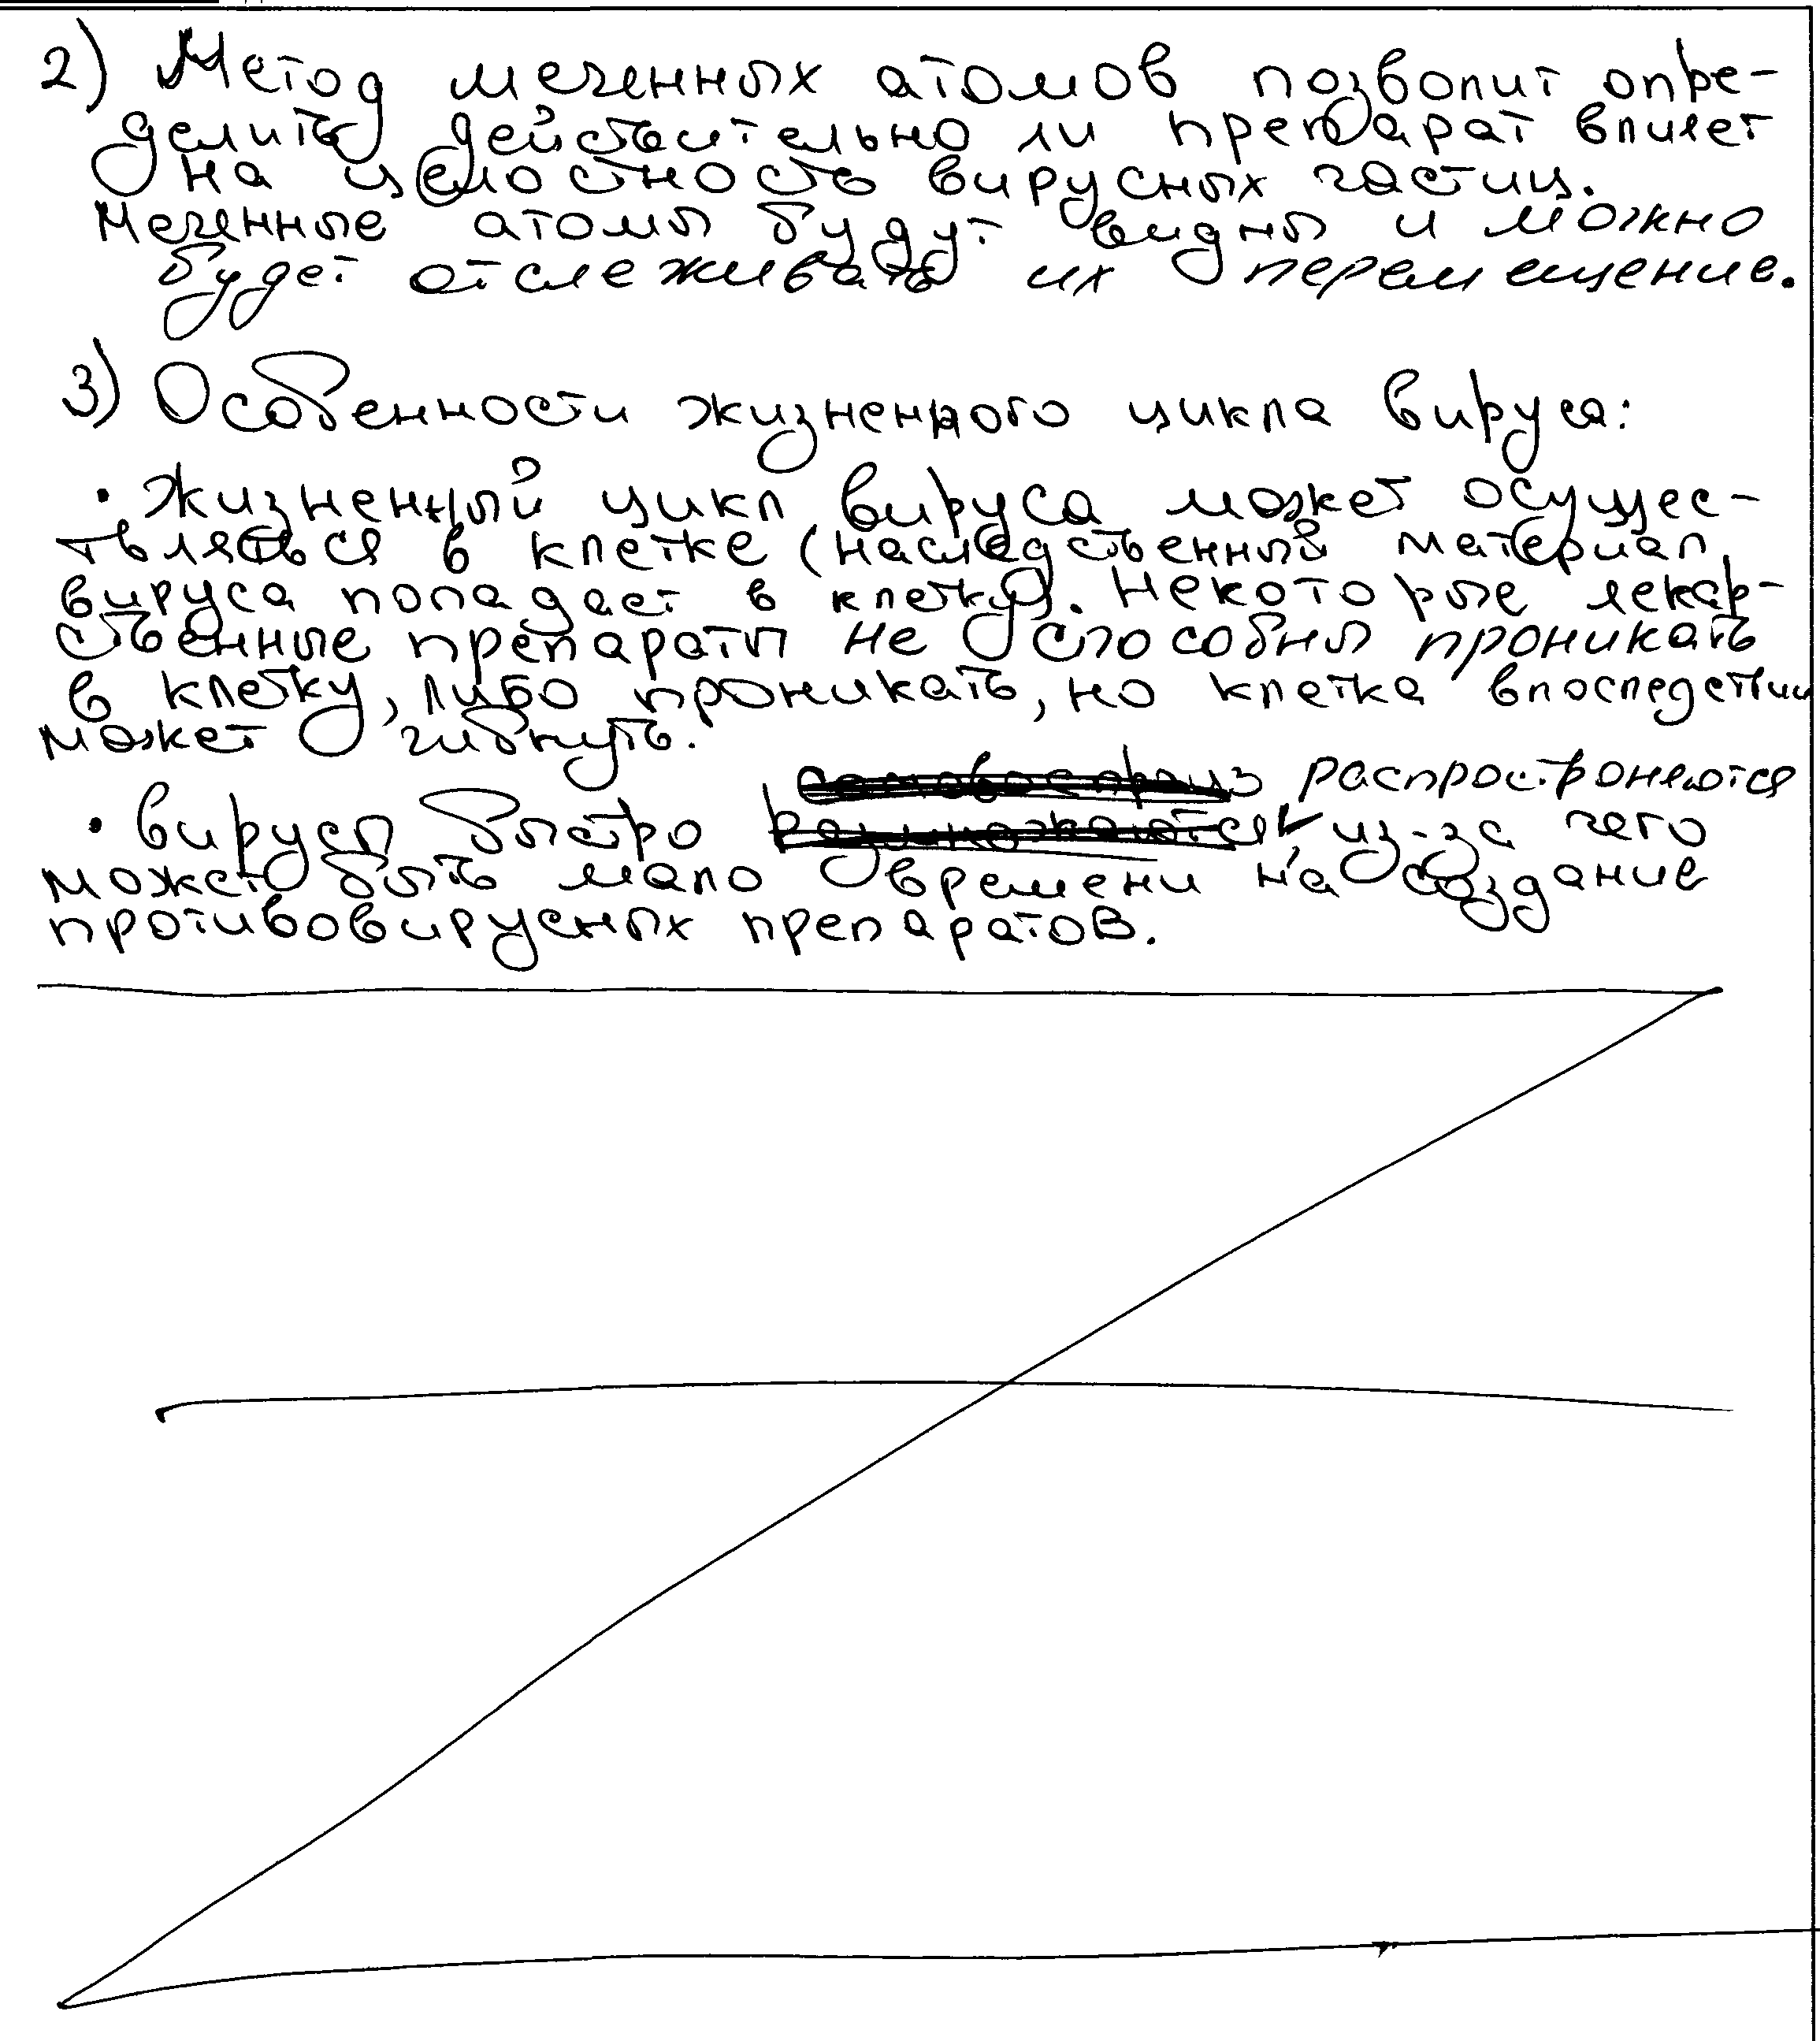 2) Метод меченных атомов позволит опре-
делить действительно ли препарат влияет
на целостность вирусных частиц.
Меченные атомы будут видны и можно
будет отслеживать их перемещение.
3) Особенности жизненного цикла вируса:
• жизненный цикл вируса может осущес-
твляться в клетке (наследственный материал
вируса попадает в клетку). Некоторые лекар-
ственные препараты не способны проникать
в клетку, либо проникать, но клетка впоследствии
может гибнуть.
распространяются
• вирусы быстро из-за чего
может быть мало времени на создание
противовирусных препаратов.